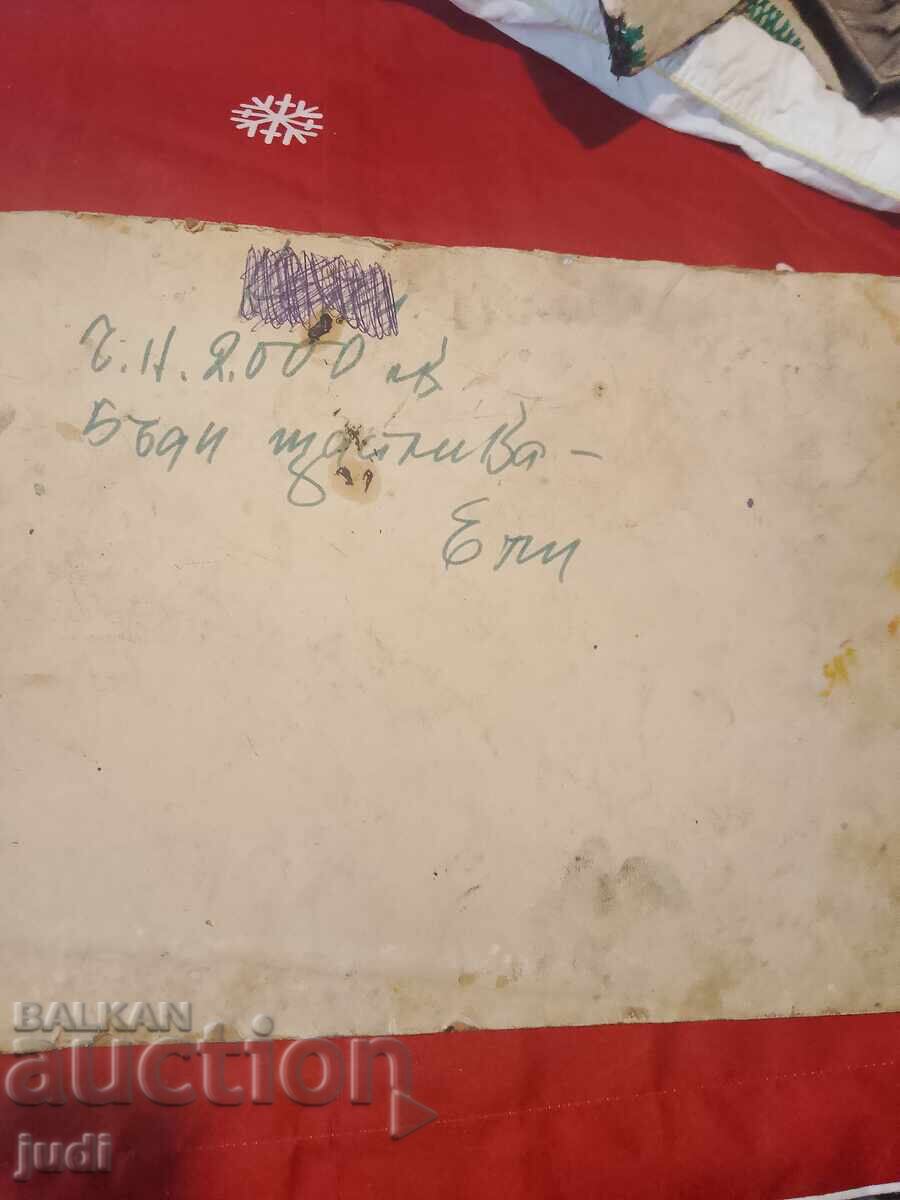 г.н. 2.000 лв
Бъди щастлива –
Ели
BALKAN
auction
judi